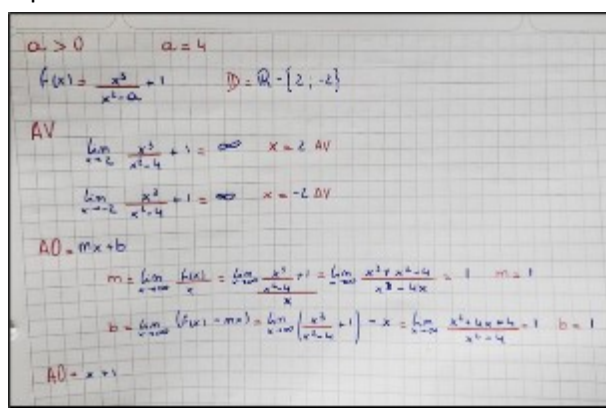 a > 0 a = 4
f(x) = x³/(x²-a) + 1 D = R - {2 ; -2}
AV
lim x→2 x³/(x²-4) + 1 = ∞ x = 2 AV
lim x→-2 x³/(x²-4) + 1 = ∞ x = -2 AV
AO = mx + b
m = lim x→∞ f(x)/x = lim x→∞ (x³/(x²-4) + 1)/x = lim x→∞ (x³+x²-4)/(x³-4x) = 1 m = 1
b = lim x→∞ (f(x) - mx) = lim x→∞ (x³/(x²-4) + 1) - x = lim x→∞ (x²+4x+4)/(x²-4) = 1 b = 1
AO = x + 1